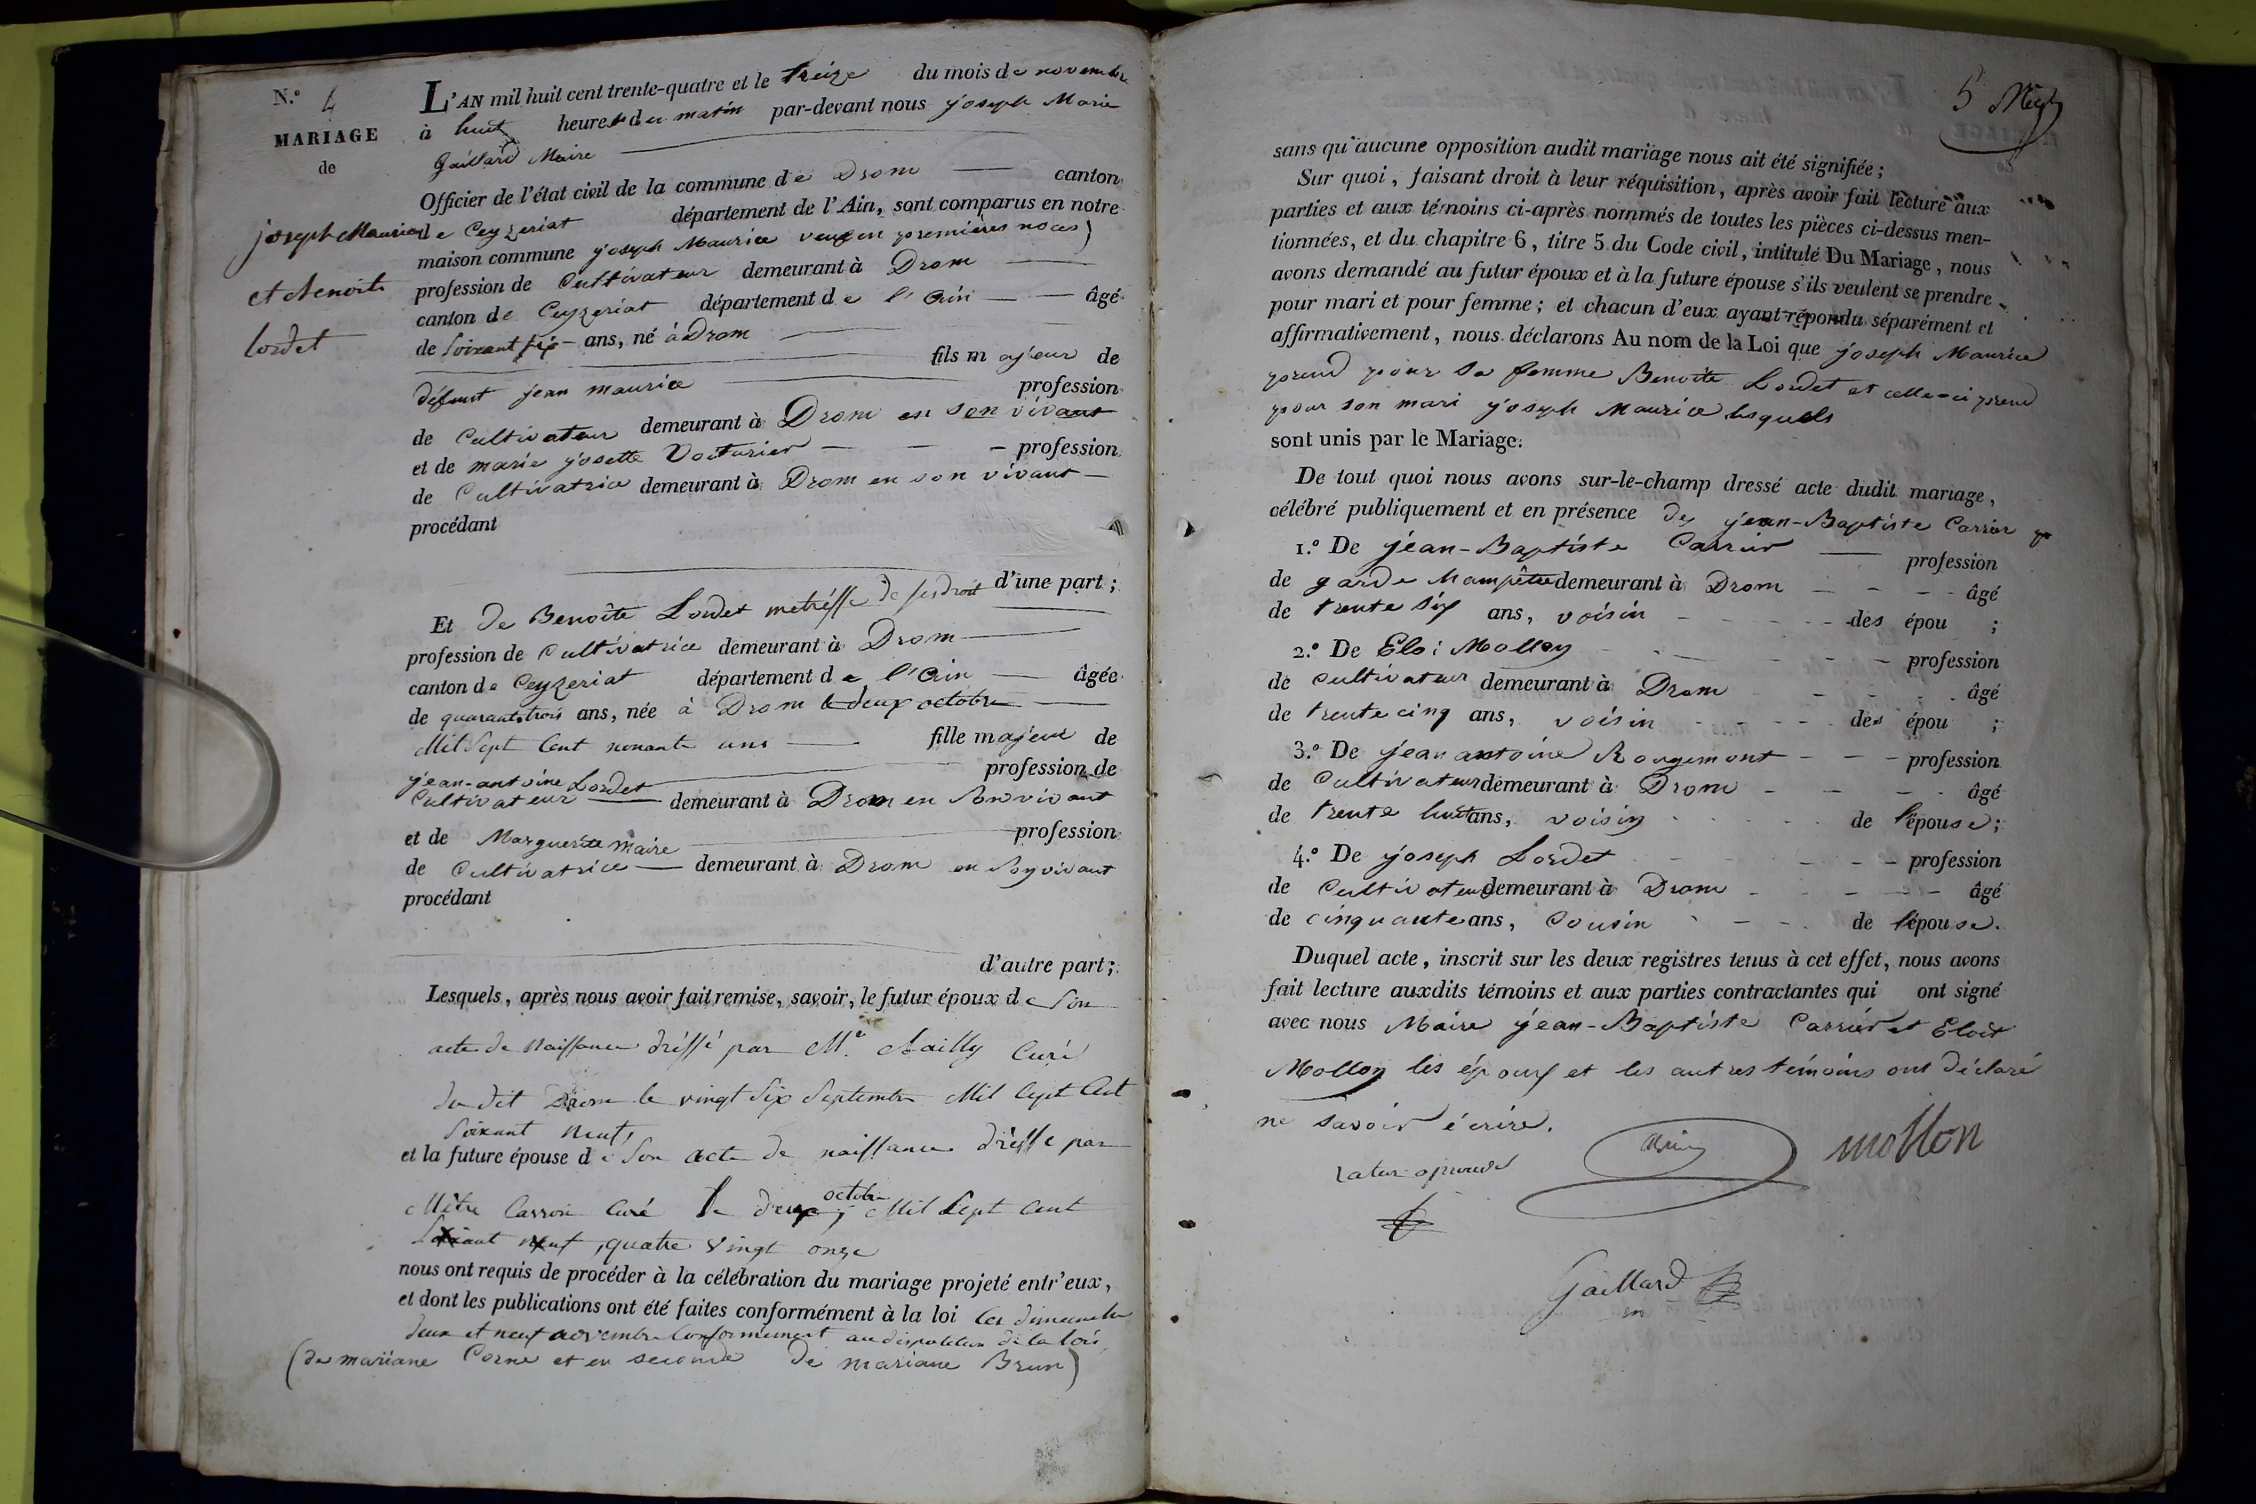 N.º 4
MARIAGE
de
joseph Maurice
et Benoite
Lordet
L'AN mil huit cent trente-quatre et le treize du mois de novembre
à huit heures du matin par-devant nous joseph Marie
Gaillard Maire
Officier de l'état civil de la commune de Drom canton
de Ceyzeriat département de l'Ain, sont comparus en notre
maison commune joseph Maurice veuf en premières noces)
profession de Cultivateur demeurant à Drom
canton de Ceyzeriat département de l'Ain âgé
de soixant six ans, né à Drom
fils majeur de
défunt jean maurice profession
de Cultivateur demeurant à Drom en son vivant
et de marie josette Voiturier profession
de Cultivatrice demeurant à Drom en son vivant
procédant
d'une part;
Et de Benoîte Lordet metrésse de ses droit
profession de Cultivatrice demeurant à Drom
canton de Ceyzeriat département de l'Ain âgée
de quarant trois ans, née à Drom le deux octobre
Mil Sept Cent nonante uns fille majeur de
jean-antoine Lordet profession de
Cultivateur demeurant à Drom en Son vivant
et de Marguerite maire profession
de Cultivatrice demeurant à Drom en Son vivant
procédant
d'autre part;
Lesquels, après nous avoir fait remise, savoir, le futur époux de Son
acte de Naissance dréssé par M.e Bailly Curé
du dit Drom le vingt Six Septembre Mil Sept Cent
Soixant neuf,
et la future épouse de Son acte de naissance dréssé par
Mètre Carron Curé le deux octobre Mil Sept Cent
Soixant neuf, quatre vingt onze
nous ont requis de procéder à la célébration du mariage projeté entr'eux,
et dont les publications ont été faites conformément à la loi les dimanche
deux et neuf novembre Conformement au disposition de la lois
(de mariane Corne et en seconde de mariane Brun)
5
sans qu'aucune opposition audit mariage nous ait été signifiée;
Sur quoi, faisant droit à leur réquisition, après avoir fait lecture aux
parties et aux témoins ci-après nommés de toutes les pièces ci-dessus men-
tionnées, et du chapitre 6, titre 5 du Code civil, intitulé Du Mariage, nous
avons demandé au futur époux et à la future épouse s'ils veulent se prendre
pour mari et pour femme; et chacun d'eux ayant répondu séparément et
affirmativement, nous déclarons Au nom de la Loi que joseph Maurice
prend pour sa femme Benoîte Lordet et celle-ci prend
pour son mari joseph Maurice lesquels
sont unis par le Mariage.
De tout quoi nous avons sur-le-champ dressé acte dudit mariage,
célébré publiquement et en présence de jean-Baptiste Carrier
1.º De jean-Baptiste Carrier profession
de garde Champêtre demeurant à Drom âgé
de trente six ans, voisin des épou ;
2.º De Eloi Mollon profession
de Cultivateur demeurant à Drom âgé
de trente cinq ans, voisin des épou ;
3.º De jean antoine Rougemont profession
de Cultivateur demeurant à Drom âgé
de trente huit ans, voisin de l'épouse;
4.º De joseph Lordet profession
de Cultivateur demeurant à Drom âgé
de cinquante ans, Cousin de l'épouse.
Duquel acte, inscrit sur les deux registres tenus à cet effet, nous avons
fait lecture auxdits témoins et aux parties contractantes qui ont signé
avec nous Maire jean-Baptiste Carrier et Eloi
Mollon les époux et les autres témoins ont déclaré
ne savoir écrire.
mollon
Gaillard